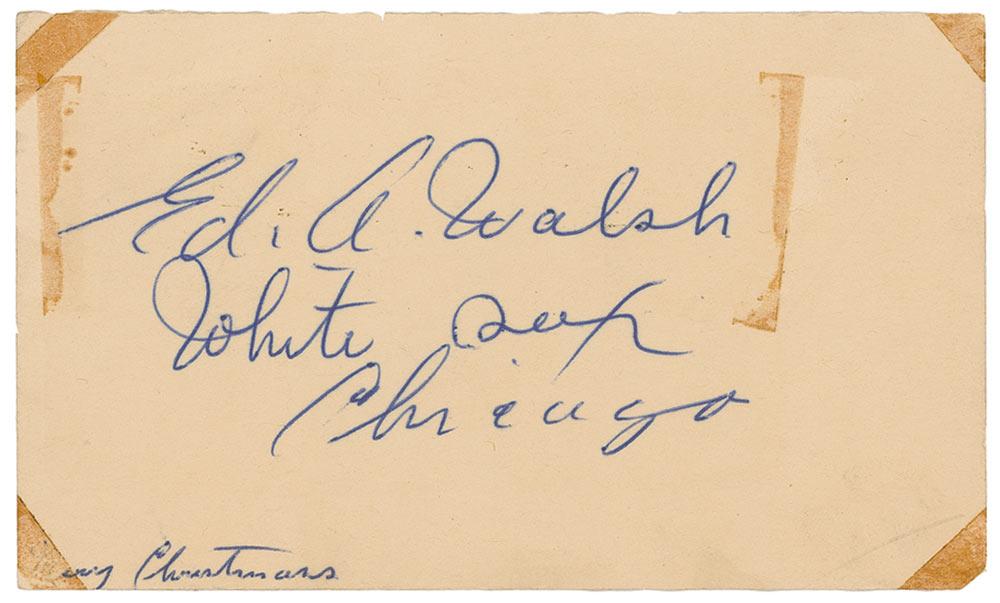 Ed. A. Walsh
White Sox
Chicago
Christmas